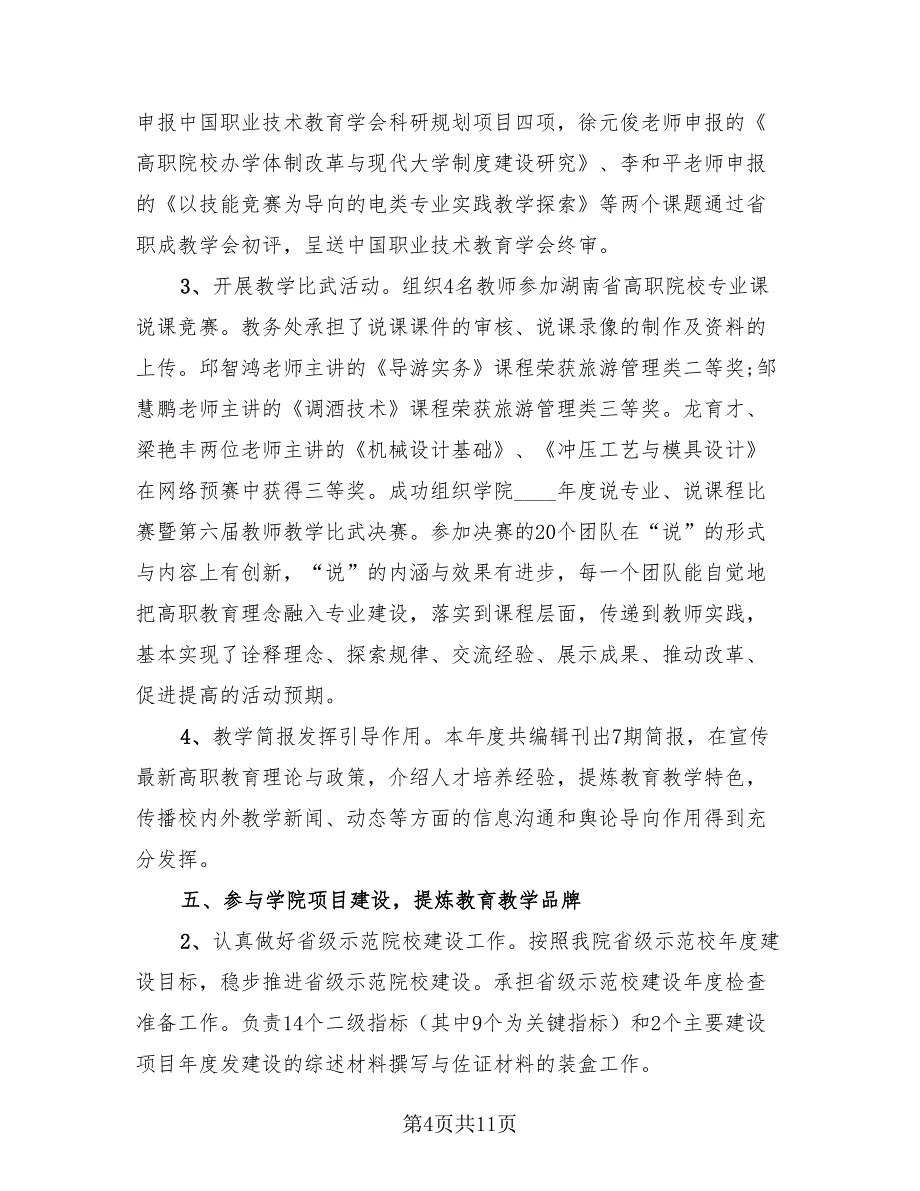 申报中国职业技术教育学会科研规划项目四项，徐元俊老师申报的《
高职院校办学体制改革与现代大学制度建设研究》、李和平老师申报
的《以技能竞赛为导向的电类专业实践教学探索》等两个课题通过省
职成教学会初评，呈送中国职业技术教育学会终审。
3、开展教学比武活动。组织4名教师参加湖南省高职院校专业课
说课竞赛。教务处承担了说课课件的审核、说课录像的制作及资料的
上传。邱智鸿老师主讲的《导游实务》课程荣获旅游管理类二等奖;邹
慧鹏老师主讲的《调酒技术》课程荣获旅游管理类三等奖。龙育才、
梁艳丰两位老师主讲的《机械设计基础》、《冲压工艺与模具设计》
在网络预赛中获得三等奖。成功组织学院____年度说专业、说课程比
赛暨第六届教师教学比武决赛。参加决赛的20个团队在“说”的形式
与内容上有创新，“说”的内涵与效果有进步，每一个团队能自觉地
把高职教育理念融入专业建设，落实到课程层面，传递到教师实践，
基本实现了诠释理念、探索规律、交流经验、展示成果、推动改革、
促进提高的活动预期。
4、教学简报发挥引导作用。本年度共编辑刊出7期简报，在宣传
最新高职教育理论与政策，介绍人才培养经验，提炼教育教学特色，
传播校内外教学新闻、动态等方面的信息沟通和舆论导向作用得到充
分发挥。
五、参与学院项目建设，提炼教育教学品牌
2、认真做好省级示范院校建设工作。按照我院省级示范校年度建
设目标，稳步推进省级示范院校建设。承担省级示范校建设年度检查
准备工作。负责14个二级指标（其中9个为关键指标）和2个主要建设
项目年度发建设的综述材料撰写与佐证材料的装盒工作。
第4页共11页